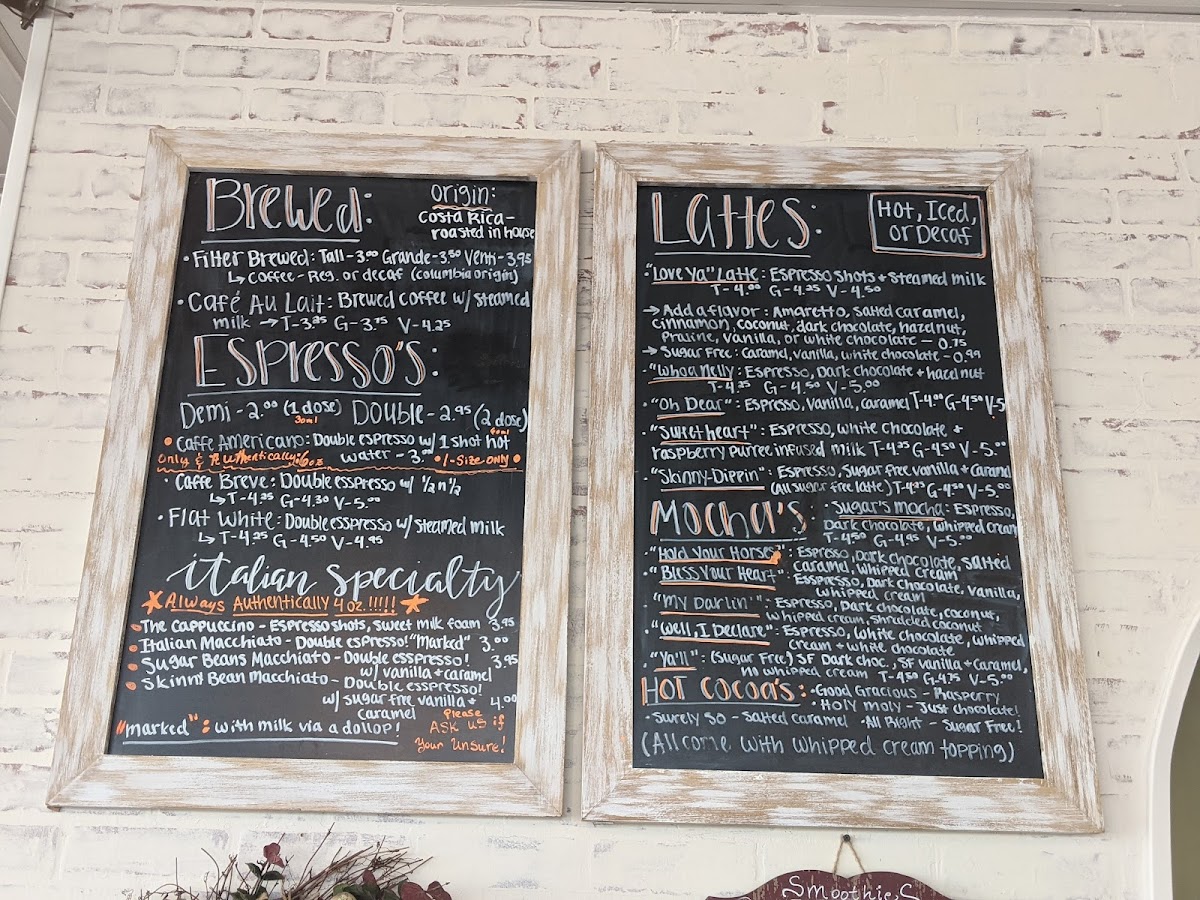 Brewed:
Origin:
Costa Rica-
roasted in house
• Filter Brewed: Tall-3.00 Grande-3.50 Venti-3.95
↳ Coffee-Reg. or decaf (Columbia origin)
• Café Au Lait: Brewed coffee w/ steamed
milk → T-3.25 G-3.75 V-4.25
Espresso's:
Demi-2.00 (1 dose) Double-2.95 (2 dose)
30ml
• Caffe Americano: Double espresso w/ 1 shot hot
Only & Authentically 6oz water-3.00 • 1-Size only •
• Caffe Breve: Double esspresso w/ 1/2 n 1/2
↳ T-4.25 G-4.30 V-5.00
• Flat White: Double esspresso w/ steamed milk
↳ T-4.25 G-4.50 V-4.95
Italian Specialty
Always Authentically 4 oz.!!!!!
• The Cappuccino - Espresso shots, sweet milk foam 3.95
• Italian Macchiato - Double espresso! "Marked" 3.00
• Sugar Beans Macchiato - Double esspresso! 3.95
w/ vanilla + caramel
• Skinny Bean Macchiato - Double esspresso!
w/ sugar free vanilla + 4.00
caramel
"marked": with milk via a dollop!
Please
ASK US if
Your Unsure!
Lattes:
Hot, Iced,
or Decaf
• "Love Ya" Latte: Espresso shots + steamed milk
T-4.00 G-4.25 V-4.50
→ Add a flavor: Amaretto, salted caramel,
cinnamon, coconut, dark chocolate, hazelnut,
Praline, vanilla, or white chocolate - 0.75
→ Sugar Free: Caramel, vanilla, white chocolate - 0.99
• "Whoa Nelly": Espresso, Dark chocolate + hazelnut
T-4.25 G-4.50 V-5.00
• "Oh Dear": Espresso, vanilla, caramel T-4.00 G-4.50 V-5
• "Sweetheart": Espresso, white chocolate +
raspberry purree infused milk T-4.25 G-4.50 V-5.00
• "Skinny-Dippin": Espresso, sugar free vanilla + Caramel
(All sugar free latte) T-4.25 G-4.50 V-5.00
Mocha's:
• Sugar's mocha: Espresso,
Dark chocolate, whipped cream
T-4.50 G-4.95 V-5.00
• "Hold Your Horses": Espresso, Dark chocolate, salted
Caramel, whipped cream
• "Bless Your Heart": Esspresso, Dark chocolate, vanilla,
whipped cream
• "My Darlin'": Espresso, Dark chocolate, coconut,
whipped cream, shredded coconut
• "Well, I Declare": Espresso, white chocolate, whipped
cream + white chocolate
• "Ya'll": (Sugar Free) SF Dark choc., SF vanilla + caramel,
no whipped cream T-4.50 G-4.75 V-5.00
Hot Cocoa's: • Good Gracious - Rasperry
• Holy moly - Just chocolate!
• Surely So - Salted caramel • All Right - Sugar Free!
(All come with whipped cream topping)
Smoothie's